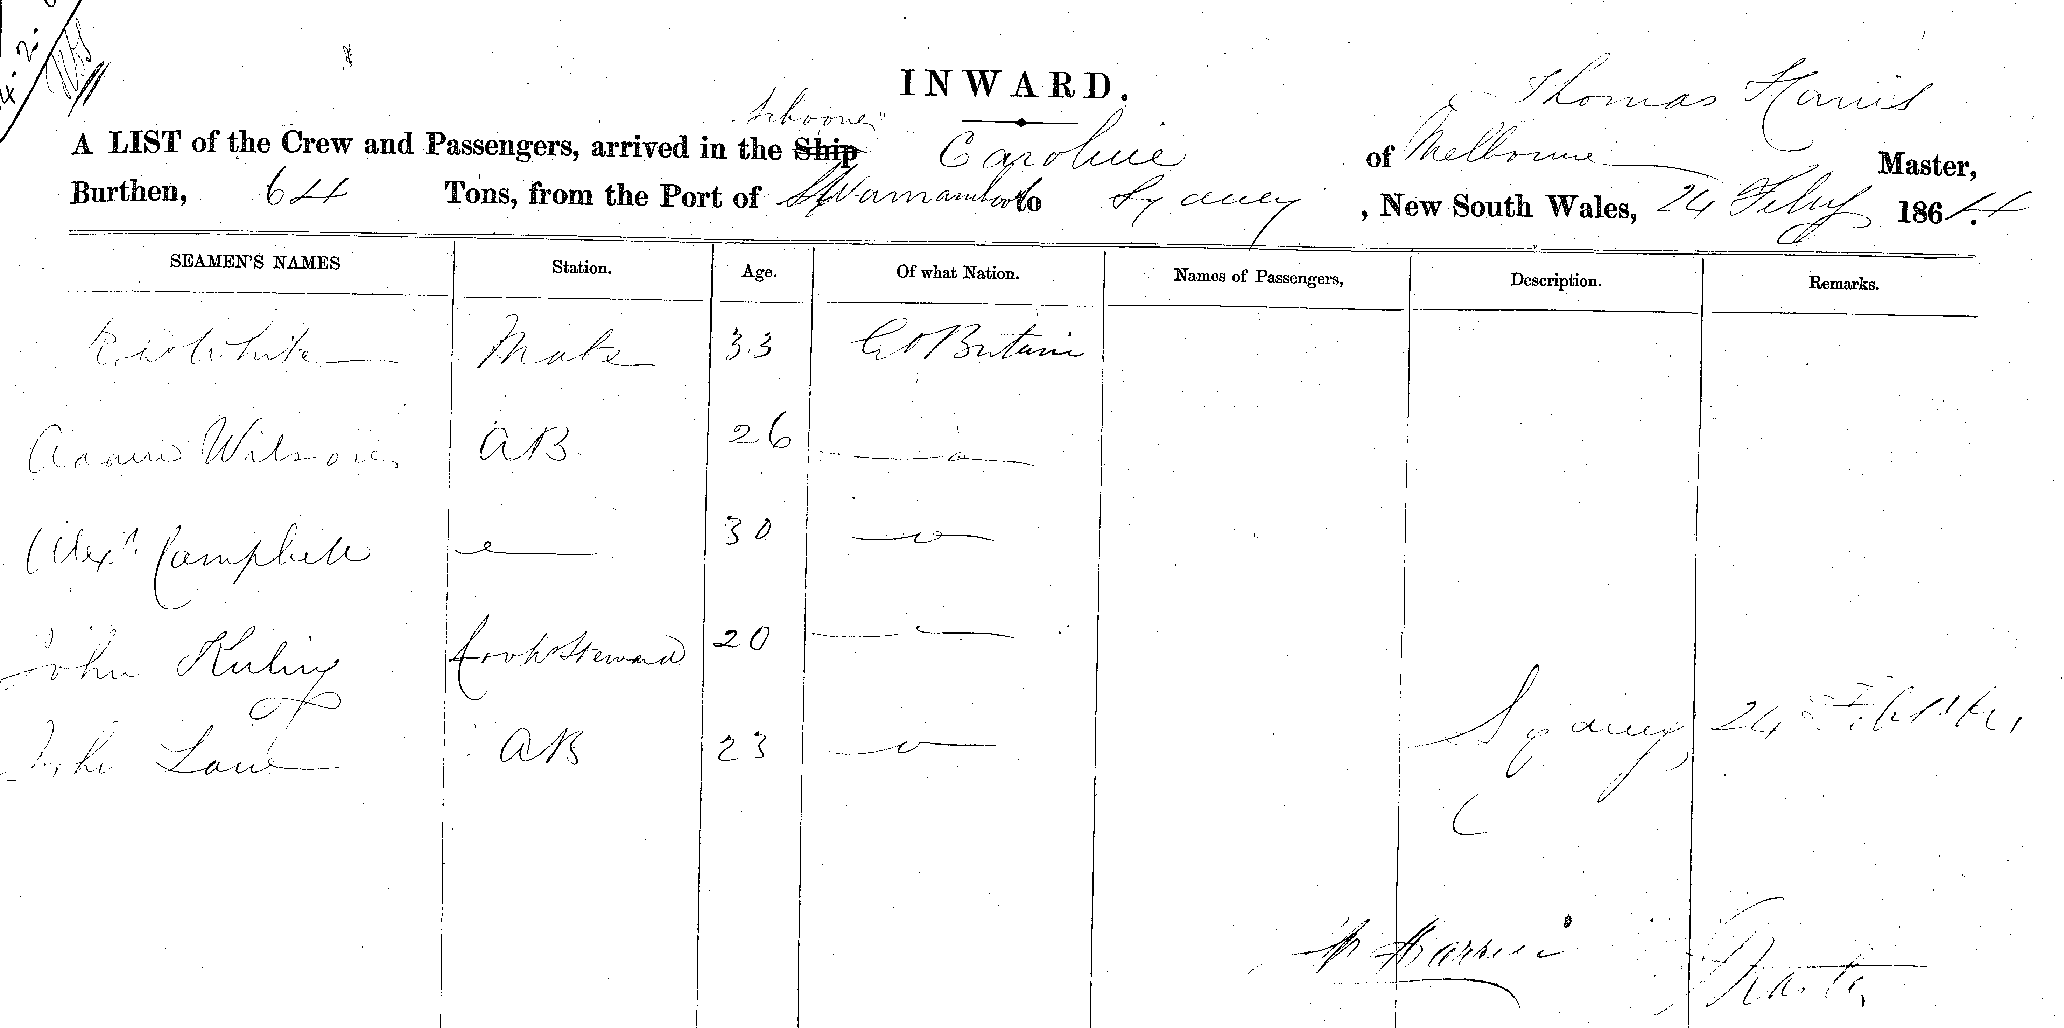 INWARD.
Thomas Harris
Schooner
A LIST of the Crew and Passengers, arrived in the Ship Caroline of Melbourne Master,
Burthen, 64 Tons, from the Port of Warnambool to Sydney, New South Wales, 24 Feby 1864.
SEAMEN'S NAMES Station. Age. Of what Nation. Names of Passengers, Description. Remarks.
White Mate 33 Gt Britain
Adam Wilson AB 26
Alexr Campbell 30
John Cook & Steward 20
John Lowe AB 23
Sydney, 24 Feb
Harris
Master